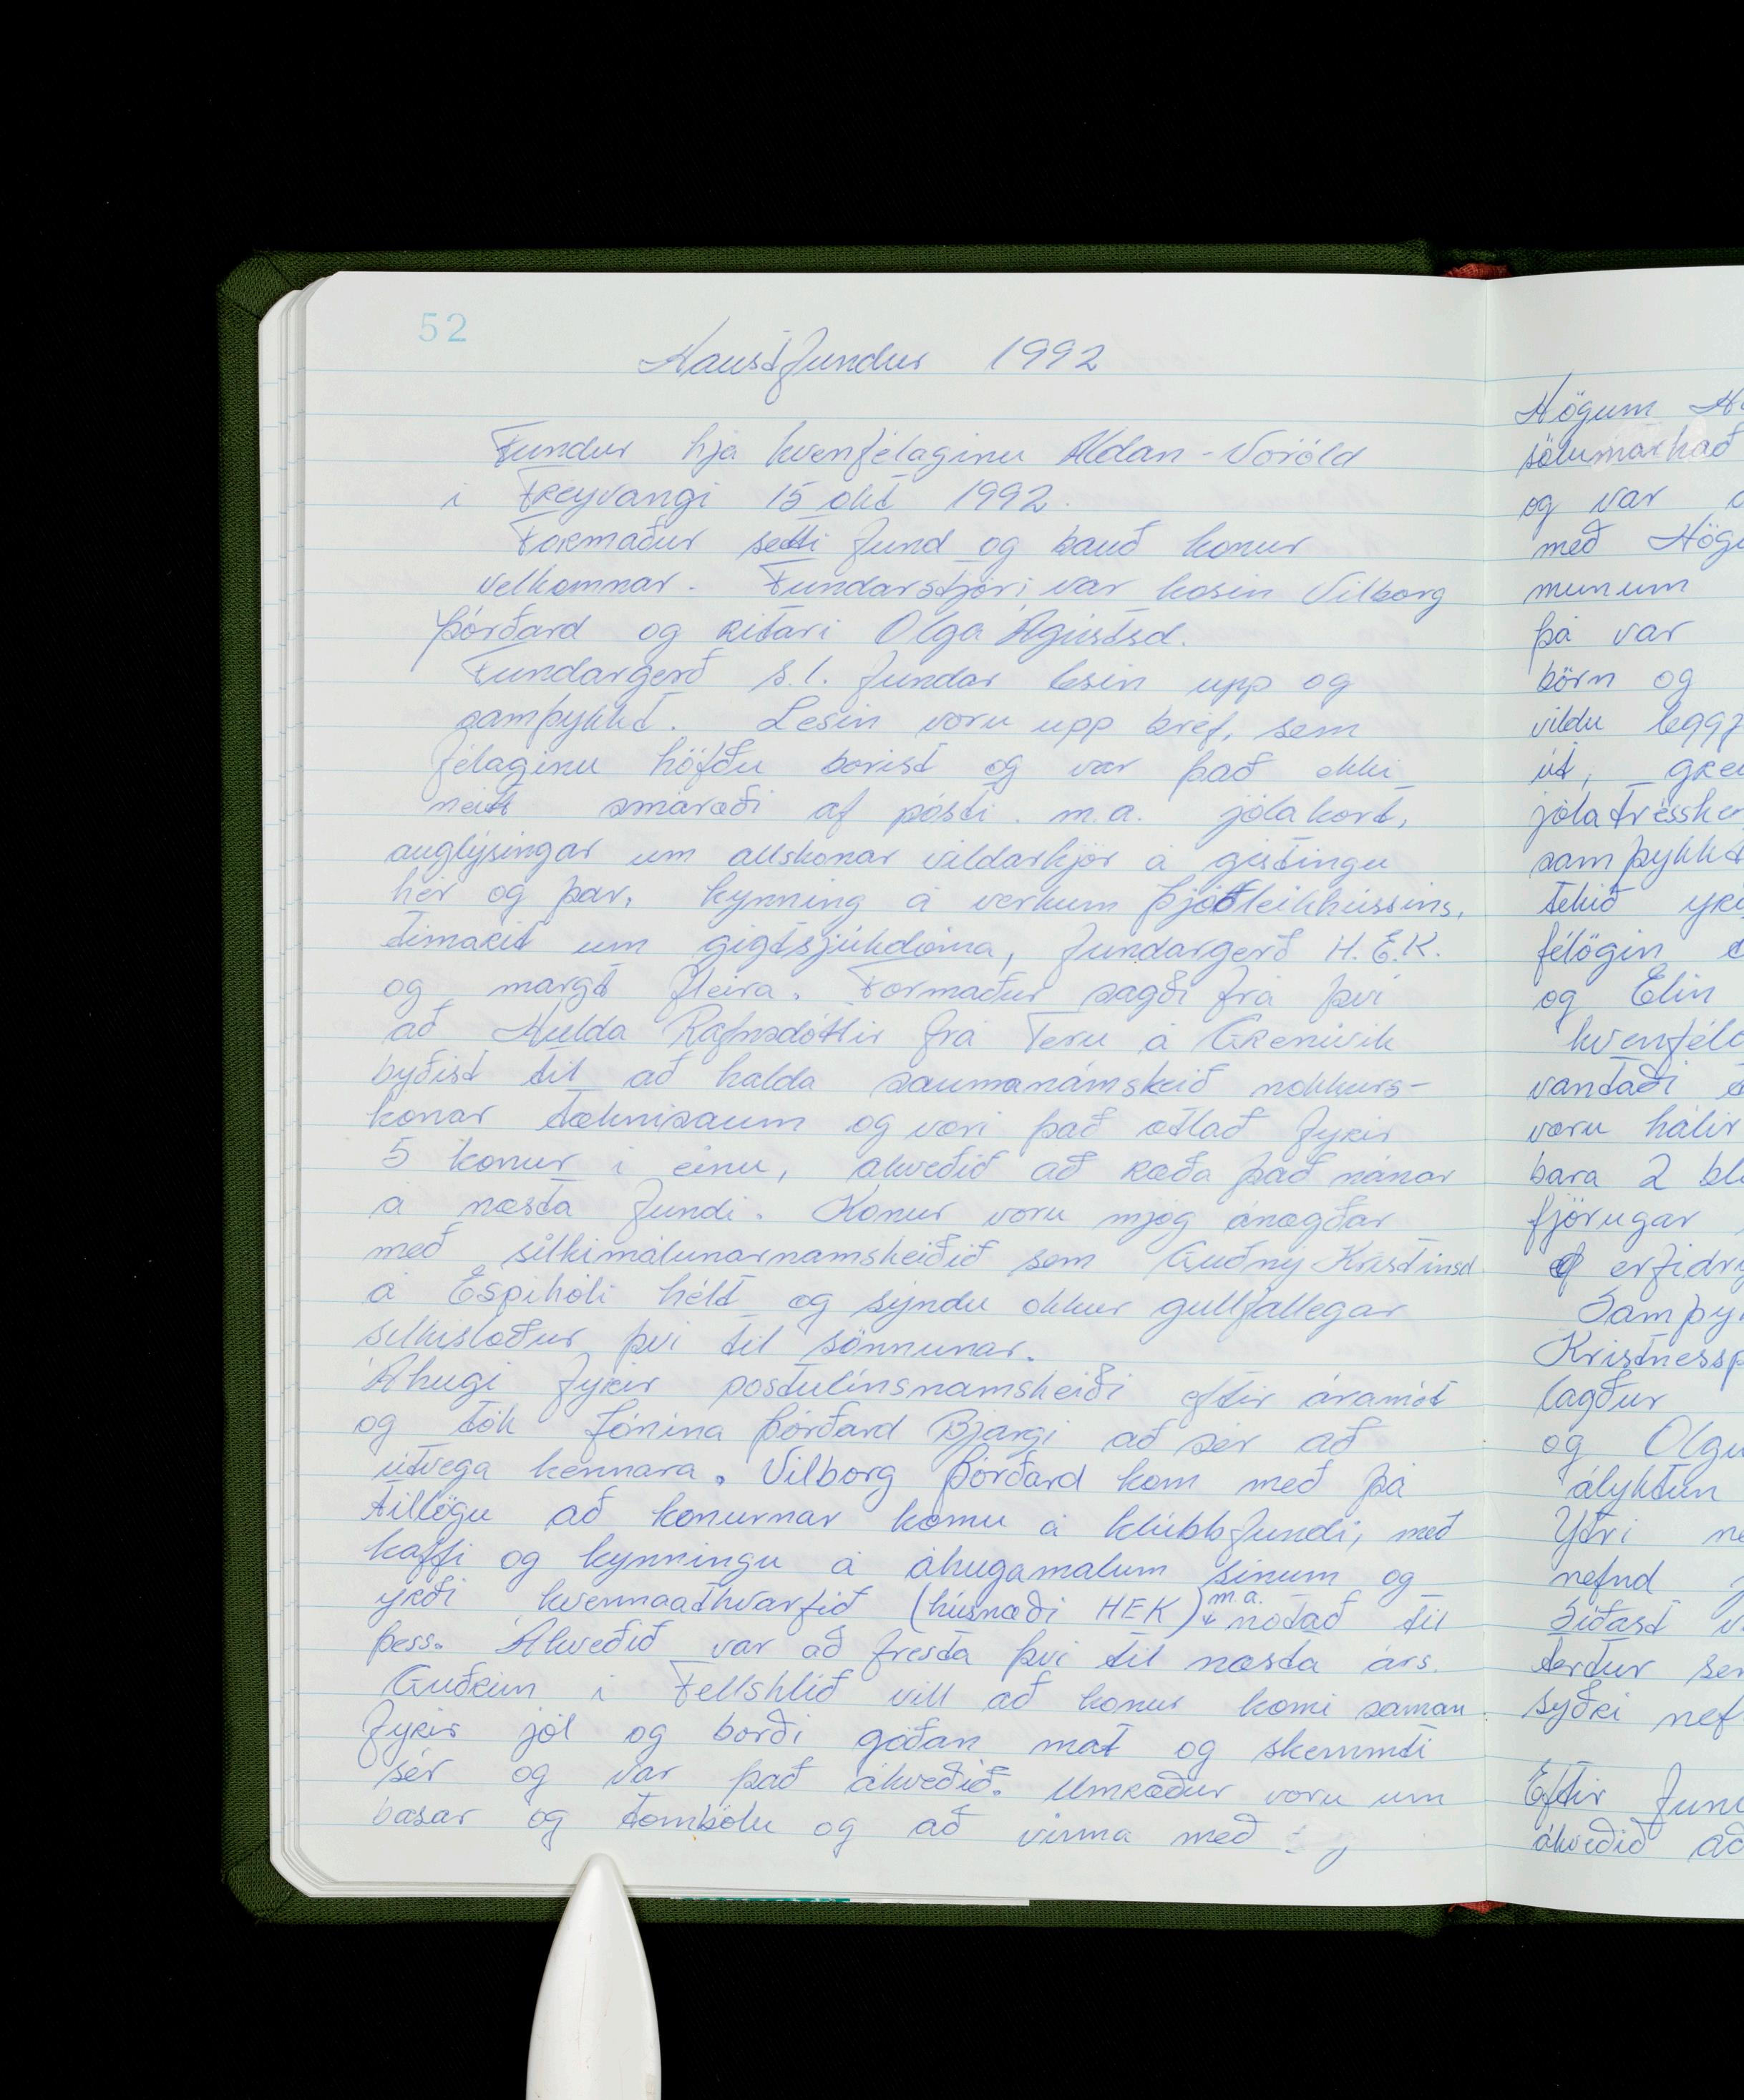 52
Haustfundur 1992
Fundur hjá kvenfélaginu Aldan-Voröld
í Freyvangi 15 okt 1992.
Formaður setti fund og bauð konur
velkomnar. Fundarstjóri var kosin Vilborg
Þórðard og ritari Olga Ágústsd.
Fundargerð s.l. fundar lesin upp og
samþykkt. Lesin voru upp bréf, sem
félaginu höfðu borist og var það ekki
neitt smáræði af pósti. m.a. jólakort,
auglýsingar um allskonar vildarkjör á gistingu
hér og þar, kynning á verkum Þjóðleikhússins,
timarit um gigtsjúkdóma, fundargerð H.E.K.
og margt fleira. Formaður sagði frá því
að Hulda Rafnsdóttir frá Teru á Grenivík
byðist til að halda saumanámskeið nokkurs-
konar tæknisaum og væri það ætlað fyrir
5 konur í einu, ákveðið að ræða það nánar
á næsta fundi. Konur voru mjög ánægðar
með silkimálunarnamskeiðið sem Guðný Kristinsd
á Espihóli hélt og sýndu okkur gullfallegar
silkislæður því til sönnunar.
Áhugi fyrir postulínsnamskeiði eftir áramót
og tók Jónína Þórðard Bjargi að sér að
útvega kennara. Vilborg Þórðard kom með þá
tillögu að konurnar kæmu á klúbbfundi, með
kaffi og kynningu á áhugamalum sínum og
yrði kvennaathvarfið (húsnæði HEK) m.a. notað til
þess. Ákveðið var að fresta því til næsta árs.
Guðrún í Fellshlíð vill að konur komi saman
fyrir jól og borði góðan mat og skemmti
sér og var það ákveðið. Umræður voru um
basar og tombólu og að vinna með
Högum
sölumarkað
og var
með
munum
þá var
börn og
vildu
út,
samþykkt
tekið
félögin
og Elín
vantaði
voru hálir
bara 2
fjörugar
lagður
og
ályktun
Ytri
nefnd
Síðast
syðri
Eftir
ákveðið að